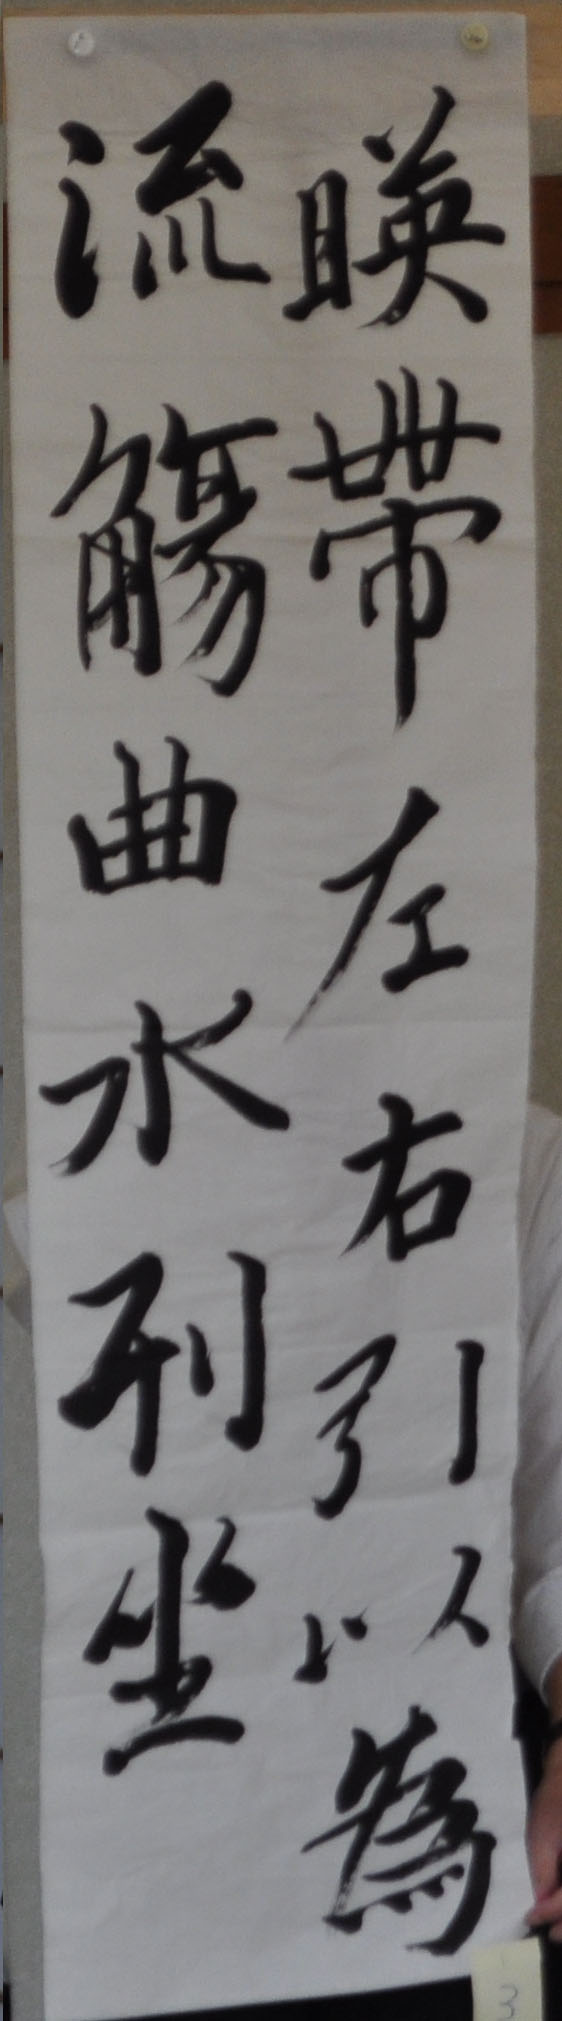 映帶左右引以為
流觴曲水列坐
3